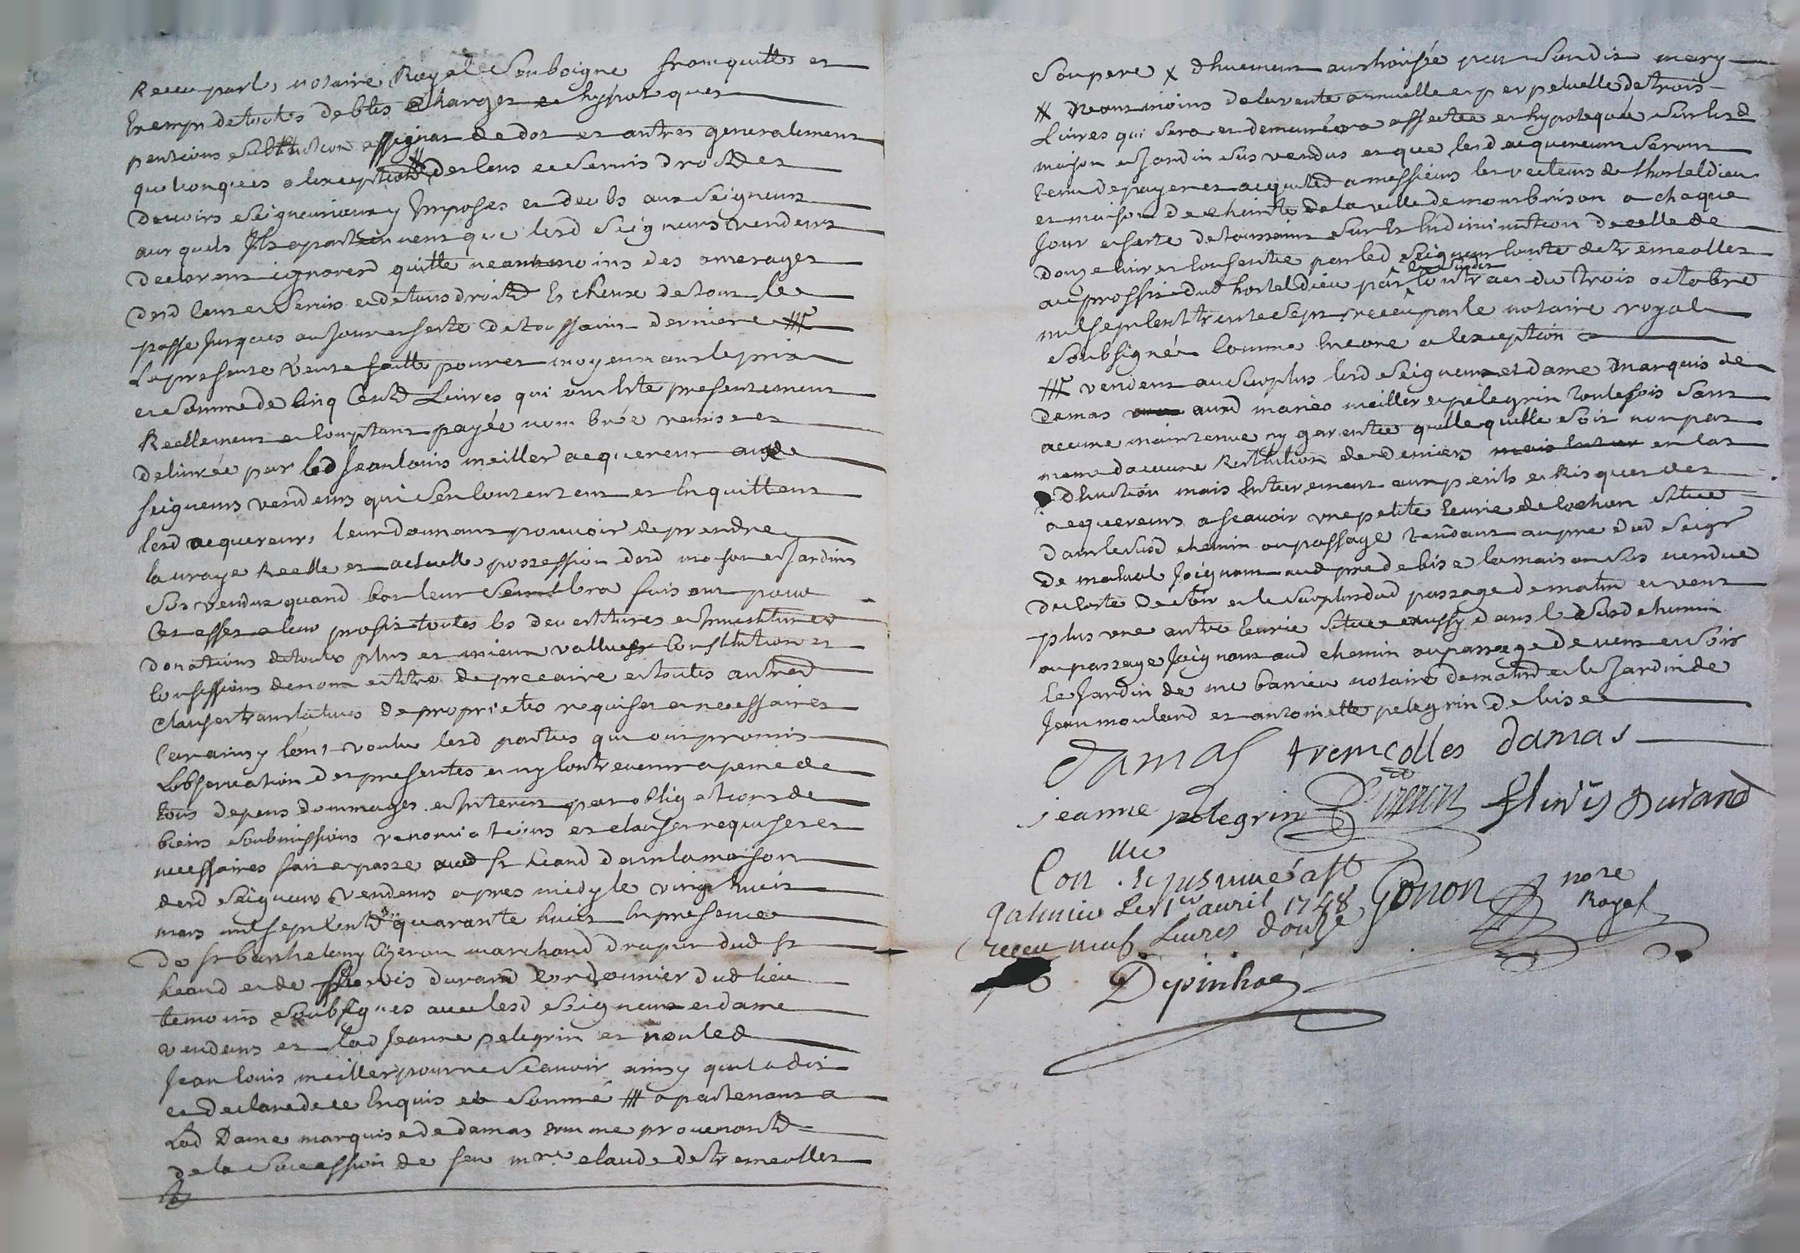 Receu par le notaire Royal Soubsigne franc quitte et
Exempt de toutes debtes charges et hypoteques
pentions substitution assignat de dot et autres generalement
quelconques a lexception # des lous et servis droits et
devoirs seigneuriaux y Imposes et deubs aux seigneurs
auxquels Ils apartiennent que lesd seigneurs vendeurs
declarent ignorer quitte neantmoins des arrerages
desd lous et servis et de tous droits Escheux de tout le
passe jusques au jour et feste de toussaint derniere ###
La presente vente faitte pour et moyennant le prix
et somme de Cinq Cents Livres qui ont ete presentement
Reellement et Comptant payée nombrée remise et
delivrée par led Jean louis meiller acquereur auxd
seigneurs vendeurs qui sen Contentent et en quittent
lesd acquereurs leur donnant pouvoir de prendre
la vraye Reelle et actuelle possession desd maison et Jardins
sus vendus quand bon leur semblera fais ont pour
Ces effet a leur profit toutes les devestitures et Investitures
donations de toutes plus et mieux vallues Constitution et
Confessions de nom et titre de precaire et toutes autres
clauses translatives de proprietes requises et necessaires
Car ainsy lont voulu lesd parties qui ont promis
Lobservation des presentes et ny Contrevenir a peine de
tous depens dommages et Interets par obligations de
biens soubmissions renonciations et clauses requises et
necessaires fait et passe aud St heand dans la maison
desd seigneurs vendeurs apres midy le vingt huit
mars mil sept Cents quarante huit En presence
de Sr Barthelemy Gieron marchand drapier dud St
heand et de flervis durand Cordonnier dud lieu
temoins soubsignes avec lesd seigneur et dame
vendeurs et lad Jeanne pelegrin et non led
Jean louis meiller pour ne scavoir ainsy quil a dit
et declare de ce Enquis et sommé ### apartenant a
Lad Dame marquise de damas comme provenants
de la succession de feu mre claude de tremeolles
Son pere x dhuement authorisée par sondit mary
# neantmoins de la rente annuelle et perpetuelle de trois
Livres qui sera et demeurera affectée et hypotequée sur lesd
maison et Jardin sus vendus et que lesd acquereurs seront
tenu de payer et acquitter a messieurs les recteurs de lhostel dieu
et maison de charité de la ville de montbrison a chaque
Jour et feste de toussaint sur Et En diminution de celle de
douze livres Consentie par led seigneur Comte de tremeolles
au proffit dud hostel dieu par Contract du trois octobre
mil sept Cent trente sept receu par le notaire royal
soubsigné Comme Encore a lexception
### vendent au surplus lesd seigneur et dame marquis de
damas auxd mariés meiller et pelegrin toutefois sans
aucune maintenue ny garentie quelle quelle soit non pas
meme daucune Restitution de deniers en Cas
dEviction mais Entierement aux perils et Risques des
acquereurs a scavoir une petite Ecurie de Cochon située
dans le susd chemin ou passage tendant au pre dud Seigr
de malval Joignant aud pre de bise la maison sus vendue
du Costé de soir et le surplus dud passage de matin et vent
plus une autre Ecurie située aussy dans le susd chemin
ou passage Joignant aud chemin ou passage de vent et soir
Le Jardin de me barrieu notaire de matin et le Jardin de
Jean moulard et antoinette pelegrin de bise
damas tremeolles damas
jeanne pelegrin Gieron flervis Durand
Con
Galmier Le 1er avril 1748 Gonon nore
Royal
receu neuf Livres douze
Depinhac